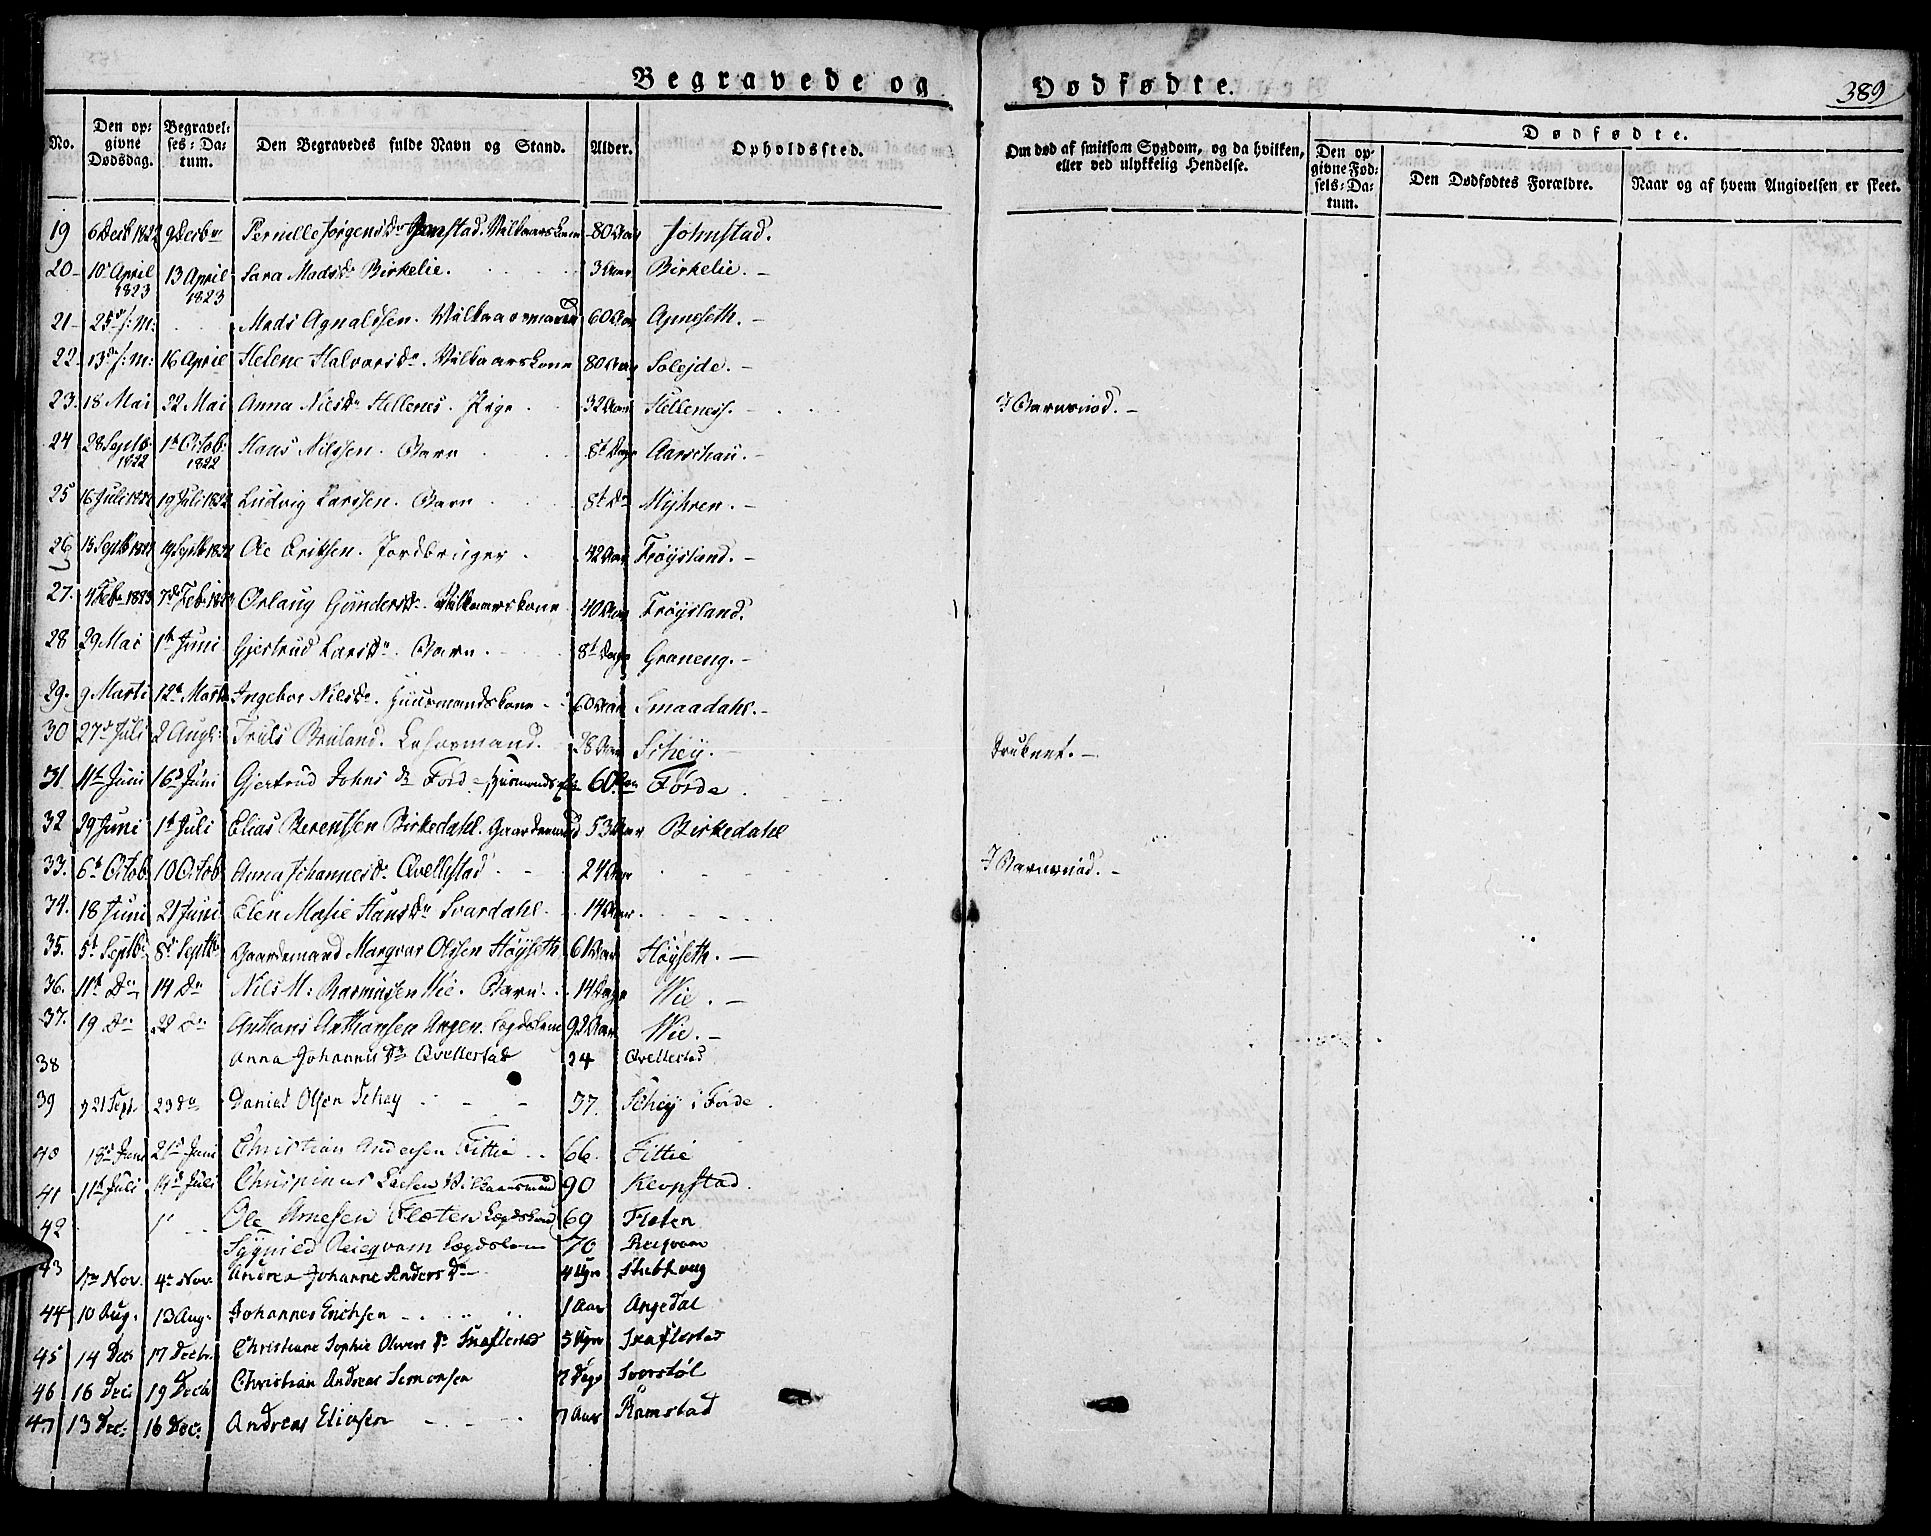 Begravede og Dødfødte.
389
No.
Den opgivne Dødsdag.
Begravelses-Datum.
Den Begravedes fulde Navn og Stand.
Alder.
Opholdssted.
Om død af smitsom Sygdom, og da hvilken, eller ved ulykkelig Hendelse.
Dødfødte.
Den opgivne Fødsels-Datum.
Den Dødfødtes Forældre.
Naar og af hvem Angivelsen er skeet.
19 6 Decb 1822 9 Decbr Pernille Jørgensdr Jonstad. Vilkaarskone 80 Aar Johnstad.
20 10 April 1823 13 April 1823 Sara Madsdr Birkelie. 3 Aar Birkelie. -
21 25 f: M: Mads Agnalssen. Vilkaarsmand 60 Aar Apneseth. -
22 13 f: M: 16 April Helene Halvorsdr. Vilkaarskone 80 Aar Solejde. -
23. 18 Mai 22 Mai Anna Nilsdr Hellenes. Pige 32 Aar Hellenes. - I Barnsnød. -
24 28 Septb. 1822 1t Octob: 1822 Hans Nilssen. Barn 8t Dage Aarschau. -
25 16 Juli 1822 19 Juli 1822 Ludvig Larssen. Barn 8t Do Myhren. -
26 15 Septb 1822 19 Septb 1822 Ole Eriksen. Jordbruger. 42 Aar Frøysland. -
27. 4 Feb. 1823 7d Feb. 1823 Orlaug Gundersdr. Vilkaarskone 40 Aar Frøysland.
28 29 Mai 1t Juni Gjertrud Larsdr. Barn. 8t Dage Graneng. -
29. 9 Marti 12t Marti Ingebor Nilsdr. Huusmandskone - 60 Aar Smaadahl. -
30 27d Juli 2 Augs: Truls Bruland. 28 Aar Schey. - Druknet. -
31. 11t Juni 16d Juni Gjertrud Johnsdr Førd - 60 Aar Førde.
32 29 Juni 1t Juli Elias Berentsen Birkedahl. Gaardmand 53 Aar Birkedahl
33. 6t Octob 10 Octob Anna Johannesdr Qvellestad 24 Aar I Barnsnød. -
34. 18 Juni 21 Juni Elen Marie Hansdr Svardahl. 14 Aar.
35. 5t Septb: 8d Septb: Gaardmand Marqvar Olssen Høyseth 61 Aar Høyseth. -
36. 11t Do 14 Do Nils M: Rasmussen Wie. Barn. 14 Dage Wie. -
37. 19 Do 22 Do Anthoni Anthonsen Angen. Lægdslem 92 Aar Wie. -
38 Anna Johannisdr Qvellestad 24 Qvellestad
39 21 Sept. 23 do Daniel Olsen Schey - - - 37. Schey i Førde.
40 18d Juni 21d Juni Christian Andersen Fittie .. 66. Fittie
41 11t Juli 14d Juli Chrispinus Vilkaarsmand 90
42 Ole Arnesen Floten 69 Floten
Reieqvam Lægdslem 70 Reiqvam
43 1te Nov. 4de Nov. Andrea Johanne Andersdr - 4 Uger Stubhoug
44 10 Aug. 13 Aug. Johannes Erichsen - 1 Aar Angedal
45 14 Dec 17 Decbr. Christiane Sophie Olivers Dr 5 Uger
46 16 Dec. 19 Decb Christian Andreas Simonsen 7 Dage
47 13 Dec: 16 Dec: Andreas Eliasen 7 Aar Ramstad